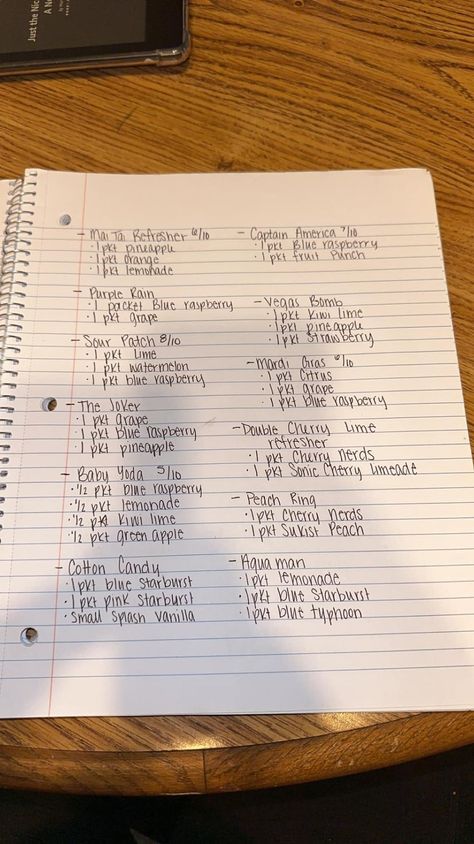 Just the Nic
A No
- Mai Tai Refresher 6/10
· 1 pkt pineapple
· 1 pkt orange
· 1 pkt lemonade
- Purple Rain
· 1 packet Blue raspberry
· 1 pkt grape
- Sour Patch 8/10
· 1 pkt lime
· 1 pkt watermelon
· 1 pkt blue raspberry
- The Joker
· 1 pkt grape
· 1 pkt blue raspberry
· 1 pkt pineapple
- Baby Yoda 5/10
· 1/2 pkt blue raspberry
· 1/2 pkt lemonade
· 1/2 pkt kiwi lime
· 1/2 pkt green apple
- Cotton Candy
· 1 pkt blue starburst
· 1 pkt pink starburst
· small splash vanilla
- Captain America 7/10
· 1 pkt Blue raspberry
· 1 pkt fruit Punch
- Vegas Bomb
· 1 pkt kiwi lime
· 1 pkt pineapple
· 1 pkt strawberry
- Mardi Gras 6/10
· 1 pkt citrus
· 1 pkt grape
· 1 pkt blue raspberry
- Double Cherry Lime
refresher
· 1 pkt Cherry nerds
· 1 pkt Sonic Cherry limeade
- Peach Ring
· 1 pkt Cherry nerds
· 1 pkt Sukist Peach
- Aqua man
· 1 pkt lemonade
· 1 pkt blue Starburst
· 1 pkt blue typhoon